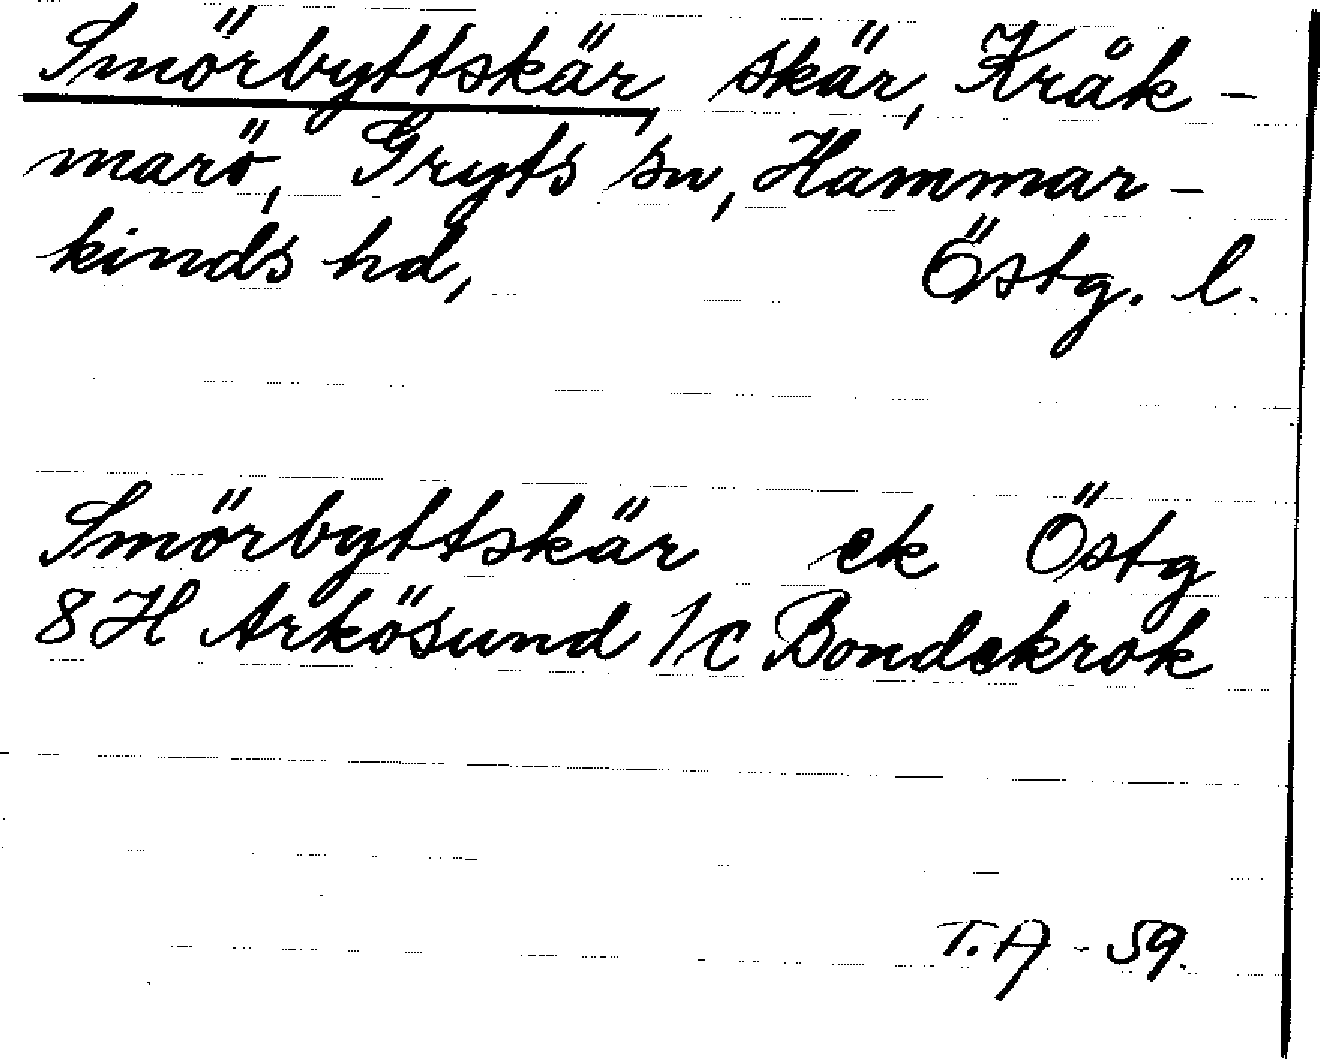 Smörbyttskär, skär, Kråk-
marö, Gryts sn, Hammar-
kinds hd, Östg. l.
Smörbyttskär ek Östg
8 H Arkösund 1/c Bondekrok
T.A - 59.